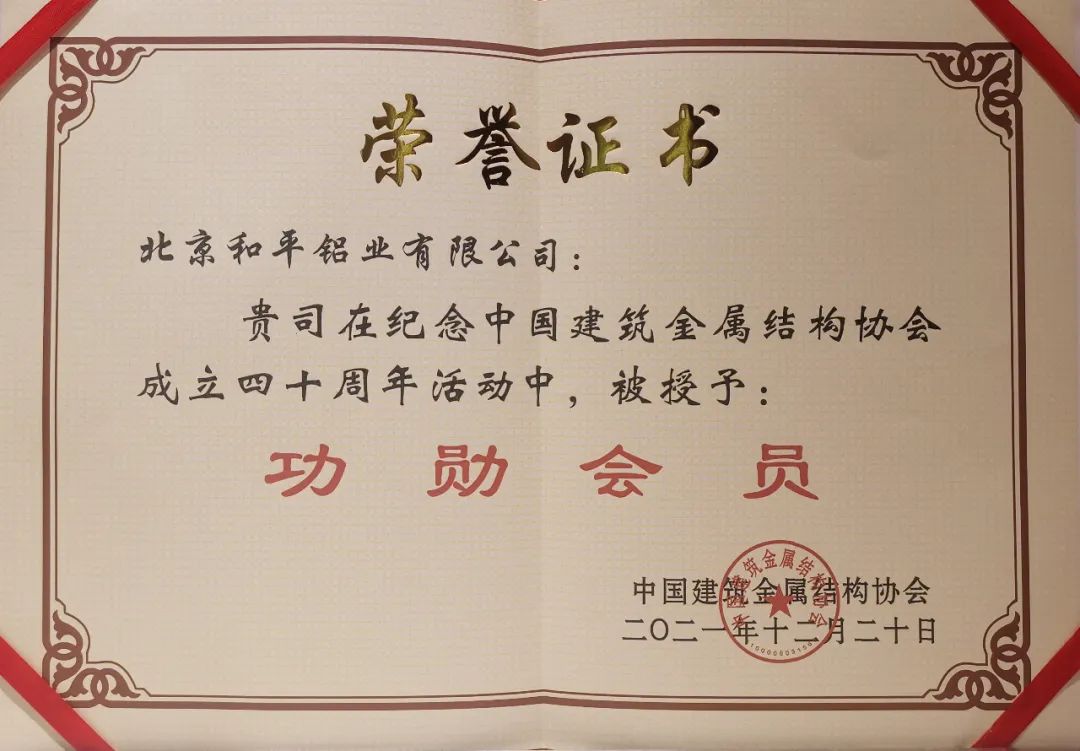 荣誉证书
北京和平铝业有限公司：
贵司在纪念中国建筑金属结构协会
成立四十周年活动中，被授予：
功勋会员
中国建筑金属结构协会
二〇二一年十二月二十日
中国建筑金属结构协会